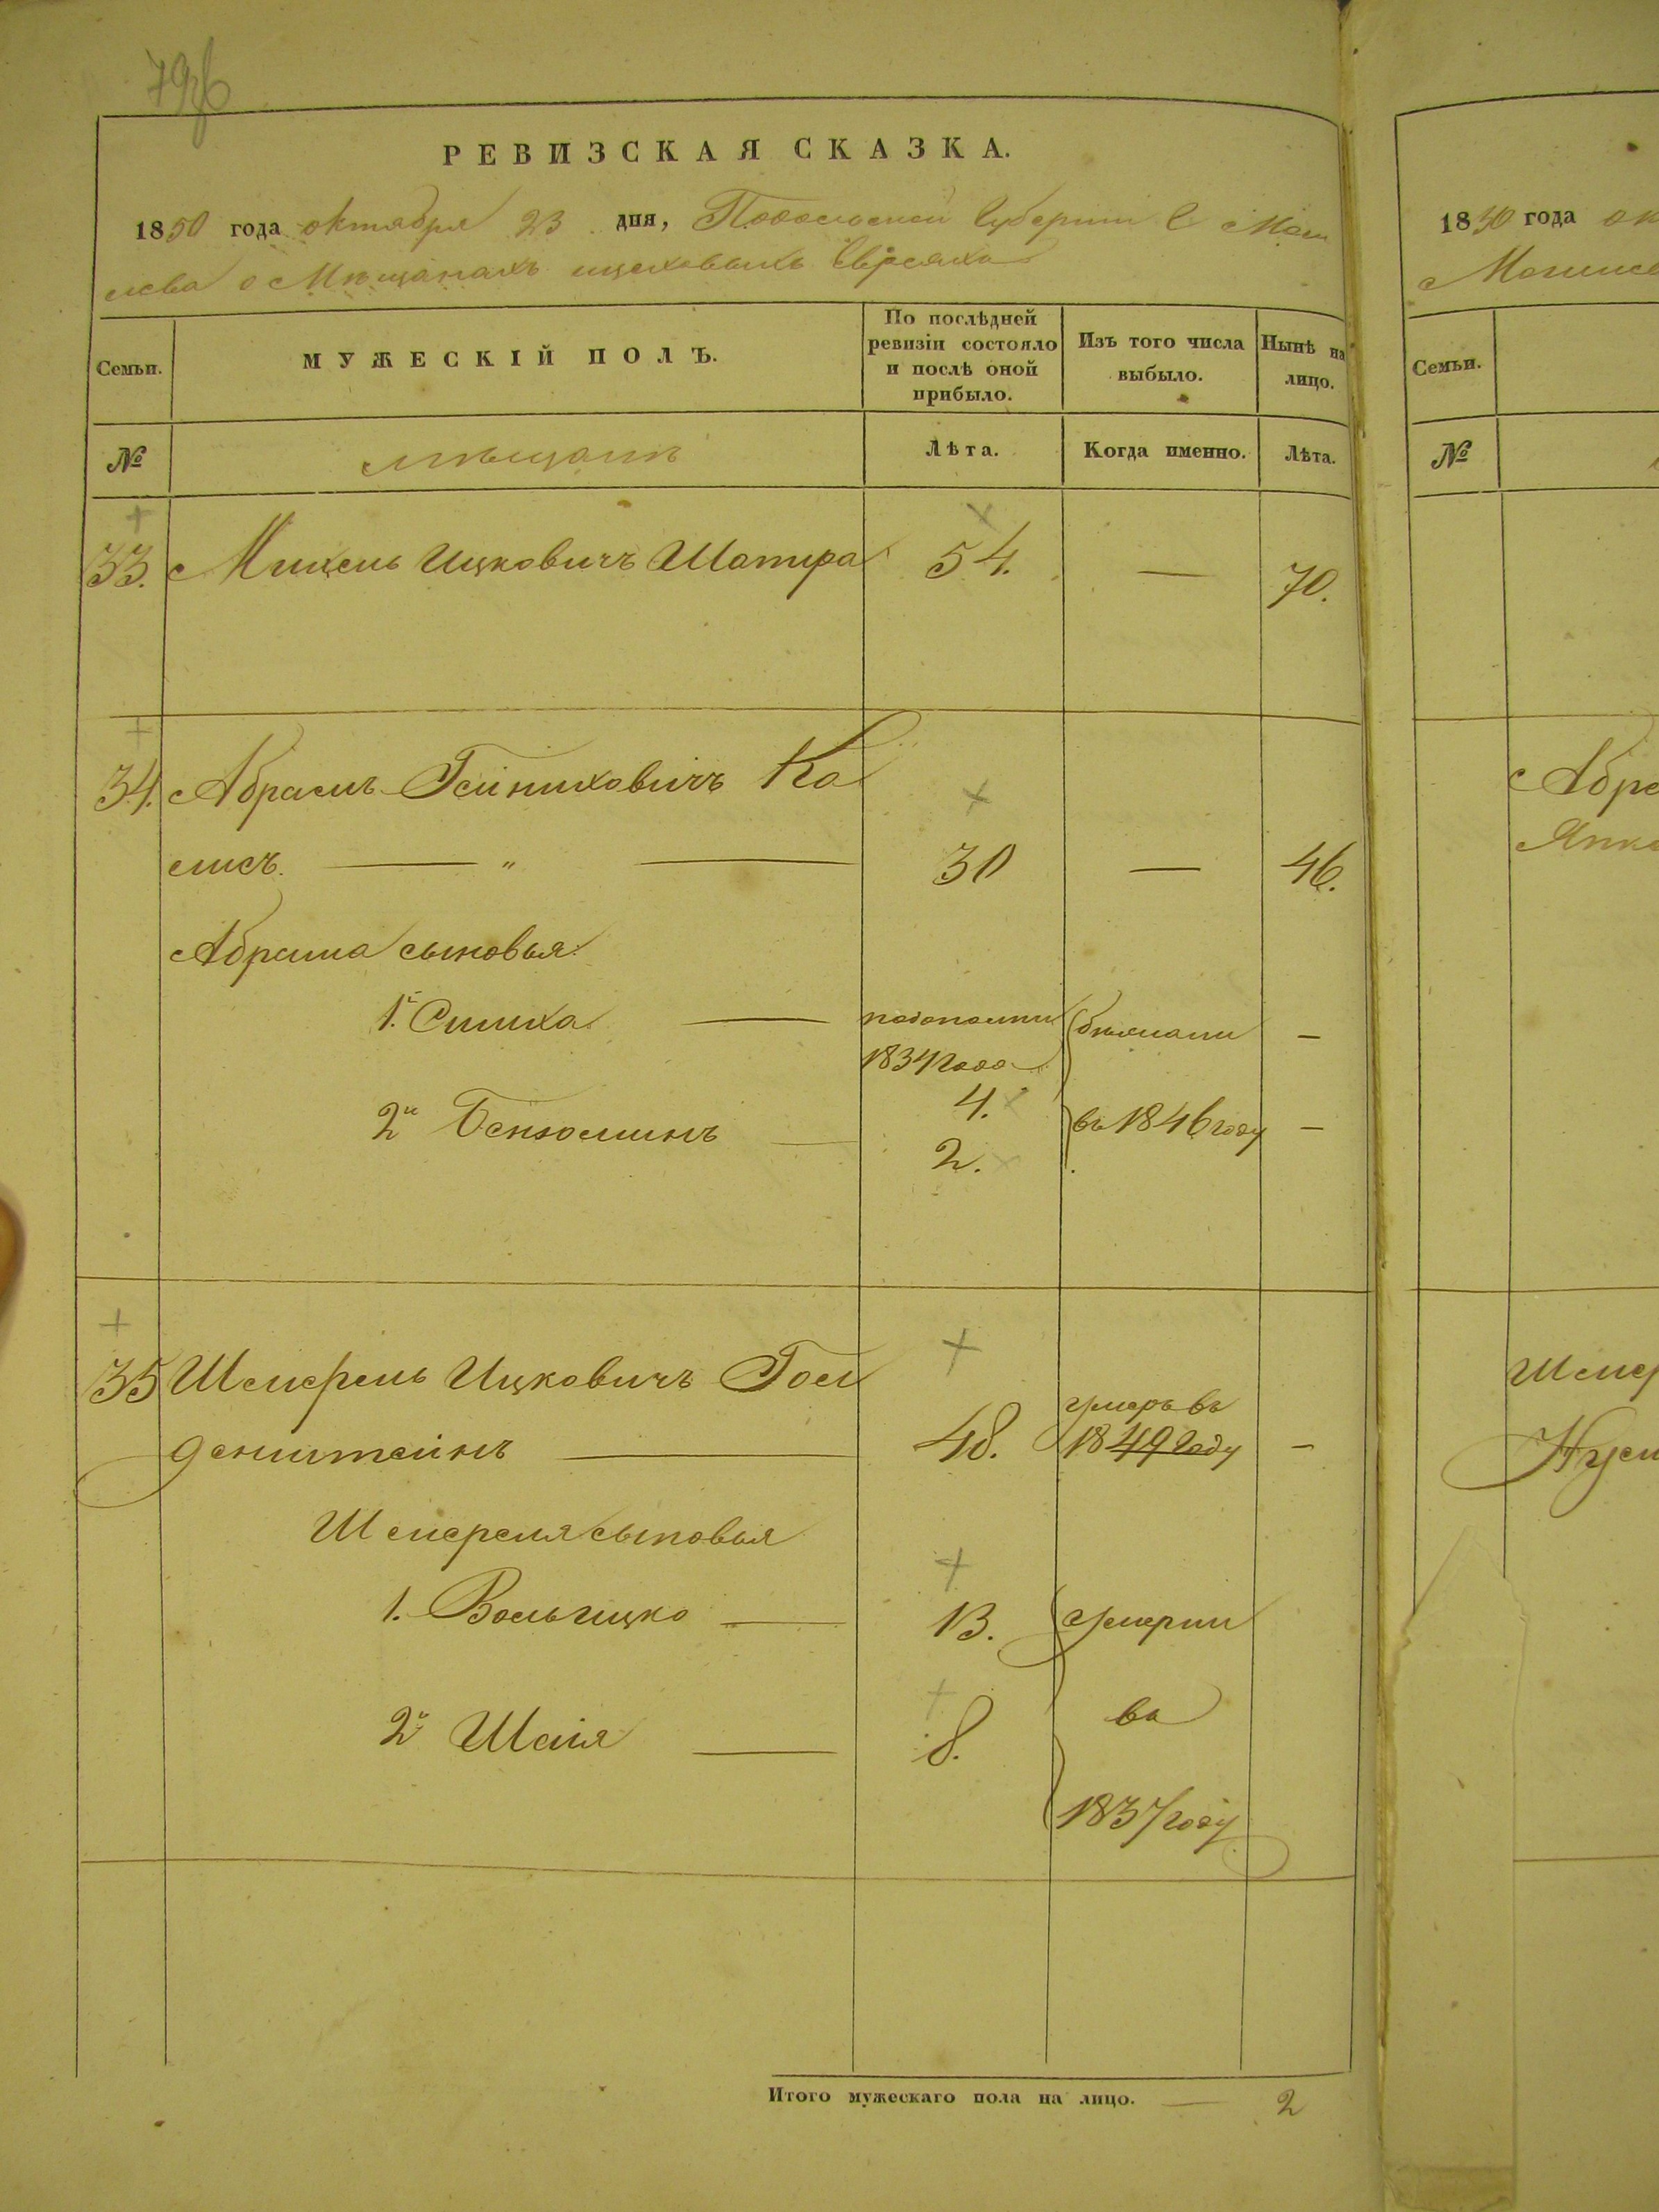 РЕВИЗСКАЯ СКАЗКА.
1850 года октября 23 дня, Подольской Губернии Г. Моги
лева о Мѣщанахъ цеховыхъ Евреяхъ
Семьи.
МУЖЕСКІЙ ПОЛЪ.
По послѣдней ревизіи состояло и послѣ оной прибыло.
Изъ того числа выбыло.
Нынѣ на лицо.
№
мѣщанъ
Лѣта.
Когда именно.
Лѣта.
33. Михель Ицковичъ Шапира 54. — 70.
34. Абрамъ Гейниховичъ Ко
лисъ. — " — 30 — 46.
Абрама сыновья
1й Симха — 
1834 года
4.
2й Бенюминъ — 2. въ 1846 году —
35 Шмерель Ицковичъ Гол
денштейнъ — 48. умеръ въ 1849 году —
Шмереля сыновья
1. Вольгицко — 13. умерли
2й Шаія — 8. въ
1837 году
Итого мужескаго пола на лицо. — 2
1850 года ок
Могиле
Семьи.
№
Абра
Шмер